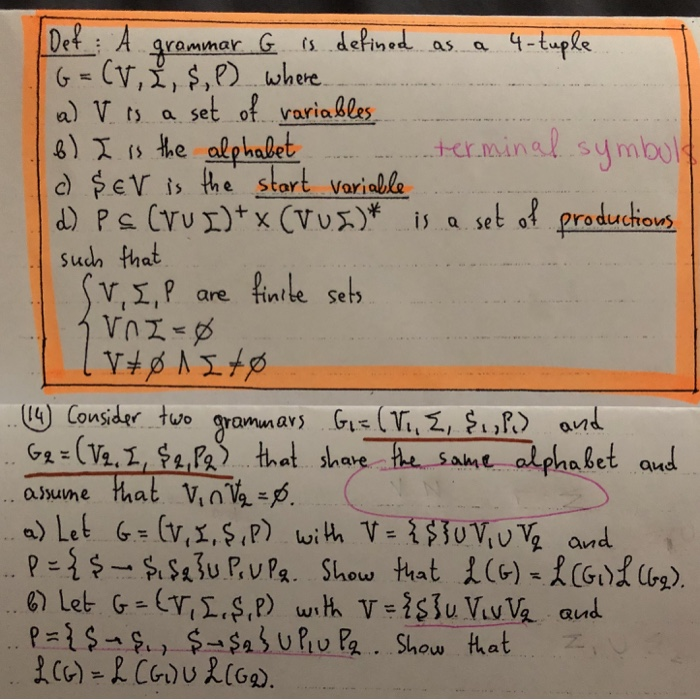 Def : A grammar G is defined as a 4-tuple
G = (V, Σ, $, P) where
a) V is a set of variables
b) Σ is the alphabet terminal symbols
c) $ ∈ V is the start variable
d) P ⊆ (V ∪ Σ)⁺ × (V ∪ Σ)* is a set of productions
such that
{ V, Σ, P are finite sets
V ∩ Σ = ∅
V ≠ ∅ ∧ Σ ≠ ∅
(14) Consider two grammars G₁ = (V₁, Σ, $₁, P₁) and
G₂ = (V₂, Σ, $₂, P₂) that share the same alphabet and
assume that V₁ ∩ V₂ = ∅.
a) Let G = (V, Σ, $, P) with V = {$} ∪ V₁ ∪ V₂ and
P = { $ → $₁$₂} ∪ P₁ ∪ P₂. Show that L(G) = L(G₁)L(G₂).
b) Let G = (V, Σ, $, P) with V = {$} ∪ V₁ ∪ V₂ and
P = { $ → $₁, $ → $₂ } ∪ P₁ ∪ P₂. Show that
L(G) = L(G₁) ∪ L(G₂).